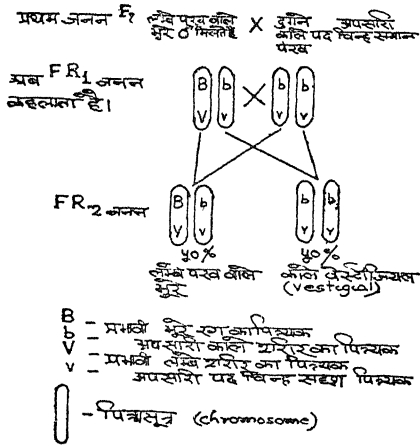 प्रथम जनन F₁ लम्बे परख वाले × दुगने अपसारि
भूरे ♂ मिलते हैं काले पद चिन्ह समान
परख
अब FR₁ जनन
कहलाता है।
B b b b
V v v v
FR₂ जनन
B b b b
V v v v
५०% ५०%
लम्बे परख वाले काले वेस्टीजियल
भूरे (vestigial)
B - प्रभावी भूरे रंग का पित्र्यक
b - अपसारी काले शरीर का पित्र्यक
V - प्रभावी लम्बे शरीर का पित्र्यक
v - अपसारि पद चिन्ह सदृश पित्र्यक
- पित्र्यसूत्र (chromosome)